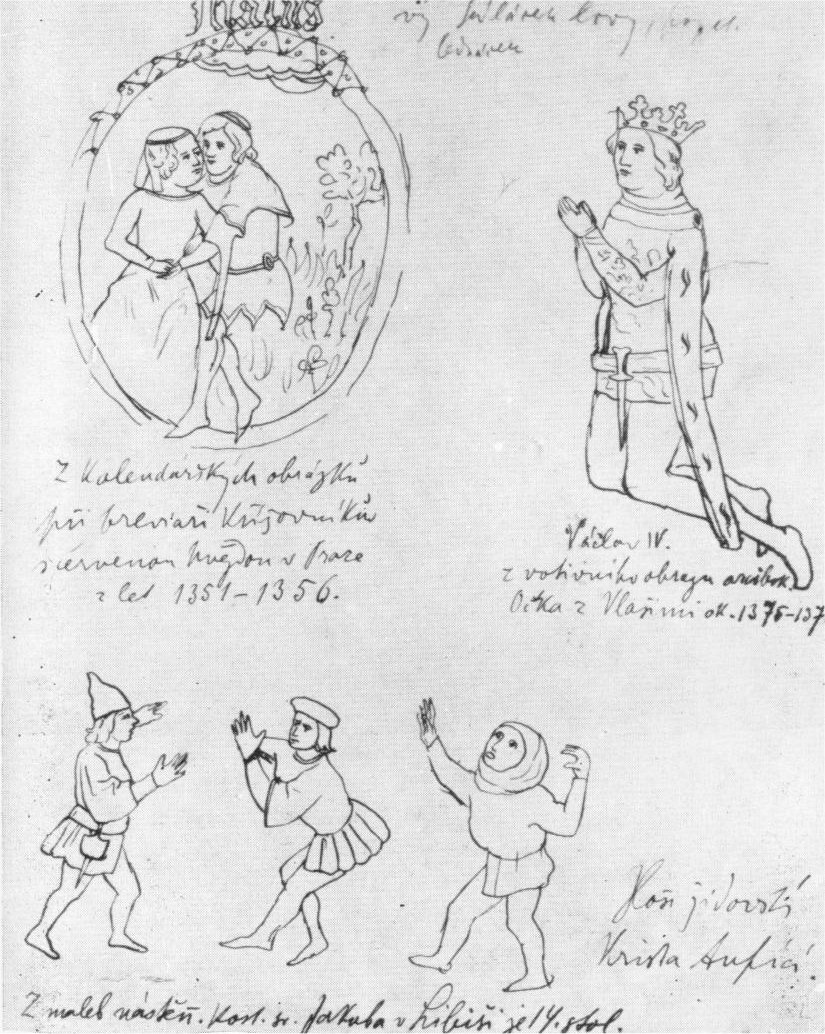 Z kalendářských obrázků
při breviáři Křižovníků
s červenou hvězdou v Praze
z let 1351–1356.
Václav IV.
z votivního obrazu arcibisk.
Očka z Vlašimi ok. 1375–137
Hoši židovští
Krista tupící.
Z maleb nástěn. kost. sv. Jakuba v Libiši je 14. stol.